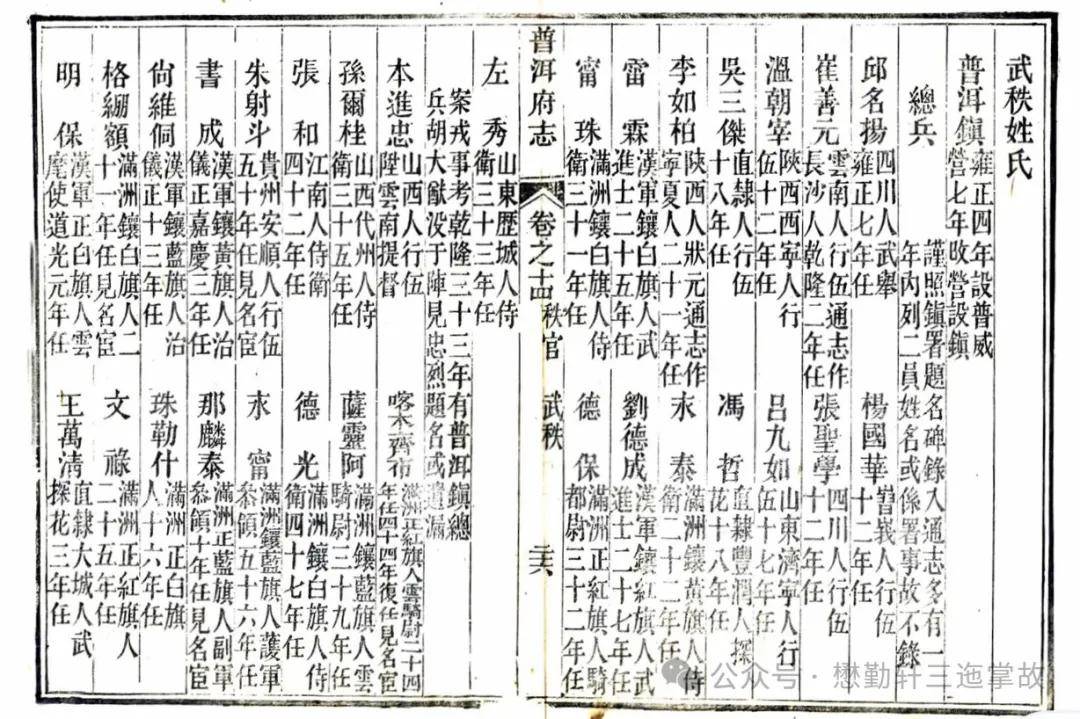 武秩姓氏
普洱鎮 雍正四年設普威營七年改營設鎮
總兵 謹照鎮署題名碑錄入通志多有一年內列二員姓名或係署事故不錄
邱名揚 四川人武舉雍正七年任 楊國華 嶍峩人行伍十二年任
崔善元 雲南人行伍通志作長沙人乾隆二年任 張聖學 四川人行伍十二年任
溫朝宰 陝西西寧人行伍十二年任 呂九如 山東濟寧人行伍十七年任
吳三傑 直隸人行伍十八年任 馮哲 直隸豐潤人探花十八年任
李如柏 陝西人狀元通志作寧夏人二十一年任 永泰 滿洲鑲黃旗人侍衛二十二年任
雷霖 漢軍鑲白旗人武進士二十五年任 劉德成 漢軍鑲紅旗人武進士二十七年任
甯珠 滿洲鑲白旗人侍衛三十一年任 德保 滿洲正紅旗人騎都尉三十二年任
普洱府志 卷之十四 秩官 武秩
左秀 山東歷城人侍衛三十三年任
案戎事考乾隆三十三年有普洱鎮總兵胡大猷没于陣見忠烈題名或遺漏
本進忠 山西人行伍陞雲南提督 喀木齊布 滿洲正紅旗人雲騎尉二十四年任四十四年復任見名宦
孫爾桂 山西代州人侍衛三十五年任 薩靈阿 滿洲鑲藍旗人雲騎尉三十九年任
張和 江南人侍衛四十二年任 德光 滿洲鑲白旗人侍衛四十七年任
朱射斗 貴州安順人行伍五十年任見名宦 永甯 滿洲鑲藍旗人護軍叅領五十六年任
書成 漢軍鑲黃旗人治儀正嘉慶三年任 那麟泰 滿洲正藍旗人副軍叅領十年任見名宦
尙維侗 漢軍鑲藍旗人治儀正十三年任 珠勒什 滿洲正白旗人十六年任
格綳額 滿洲鑲白旗人二十一年任見名宦 文祿 滿洲正紅旗人二十五年任
明保 漢軍正白旗人雲麾使道光元年任 王萬清 直隸大城人武探花三年任
公众号·懋勤轩三迤掌故